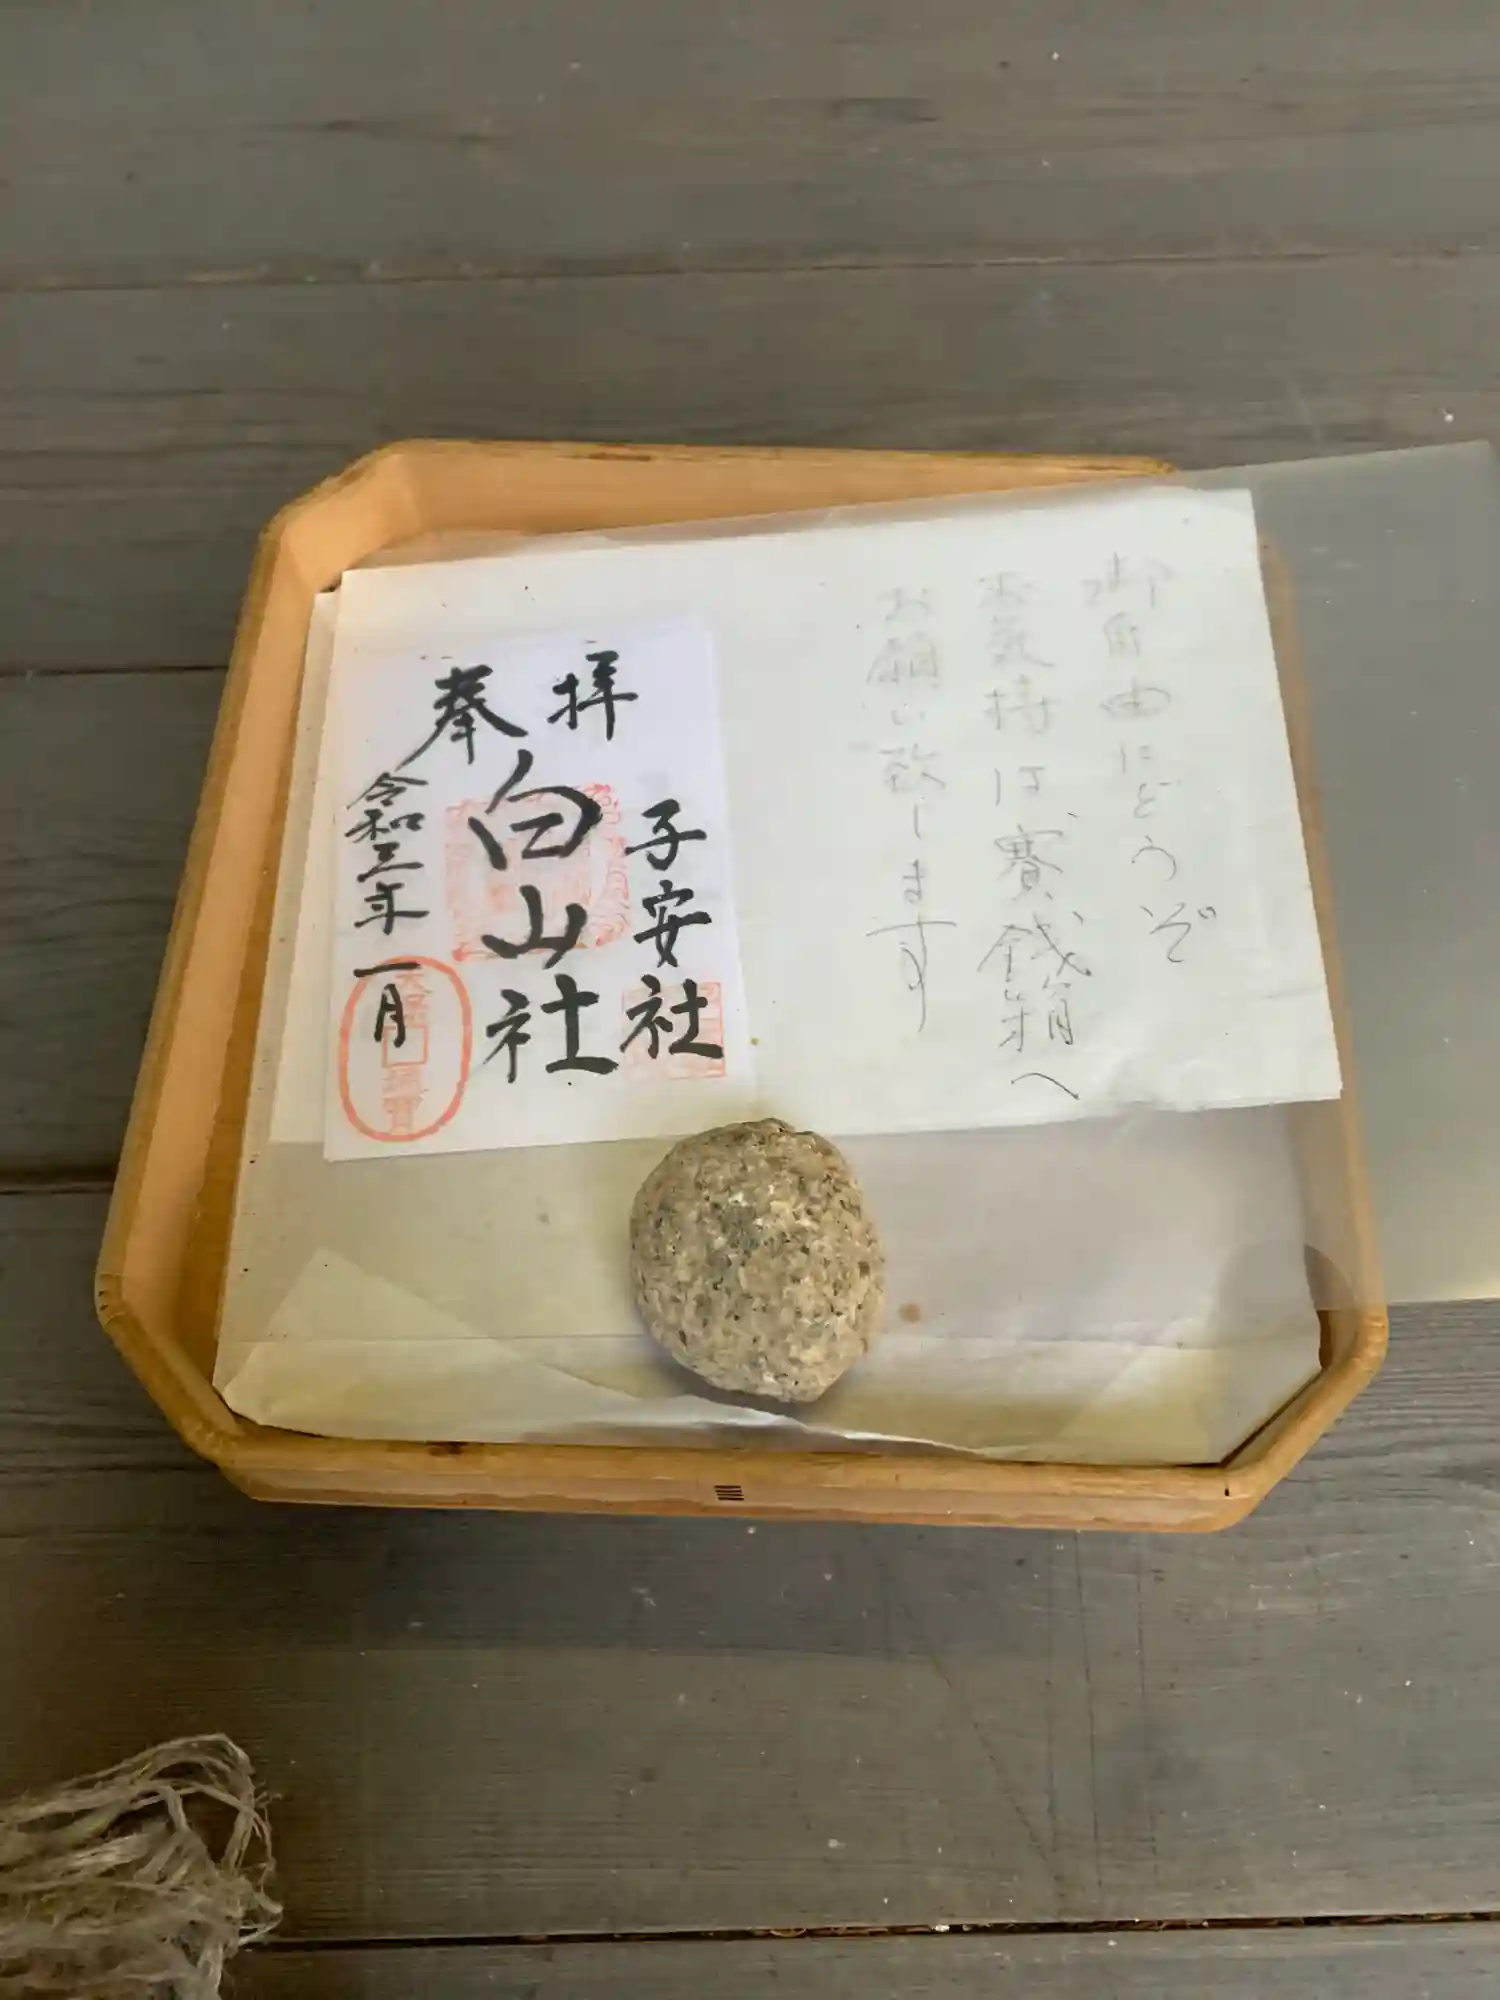 御自由にどうぞ
お気持は賽銭箱へ
お願い致します
奉拝
子安社
白山社
令和三年一月